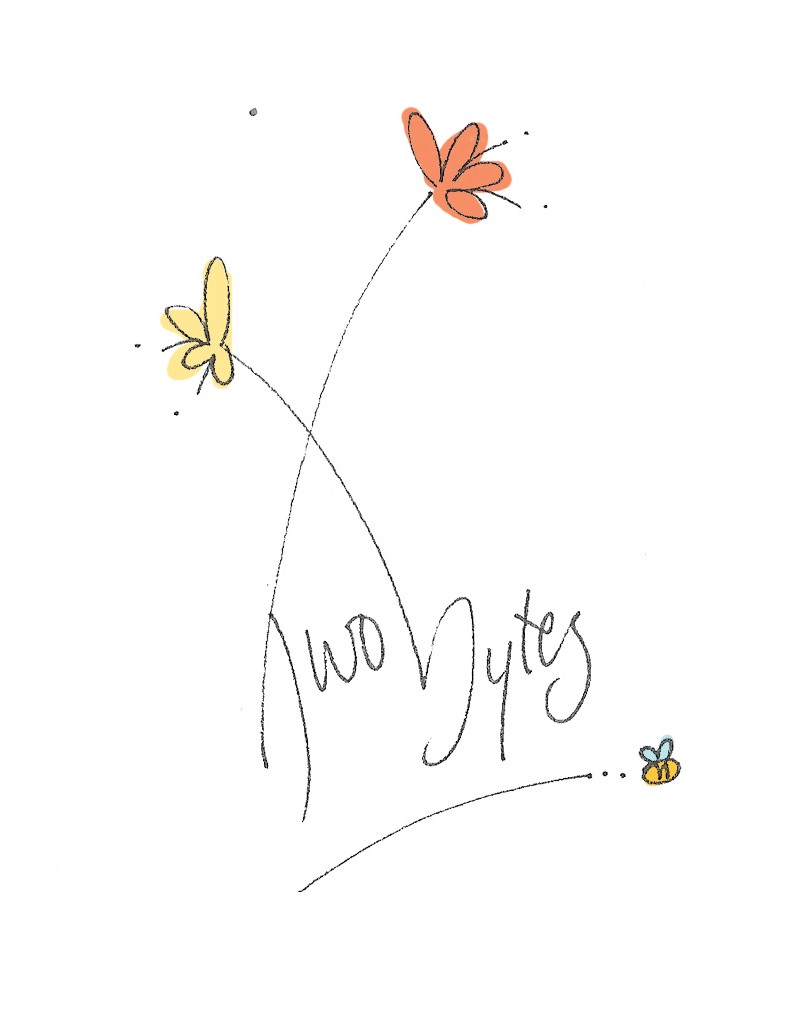 Two bytes